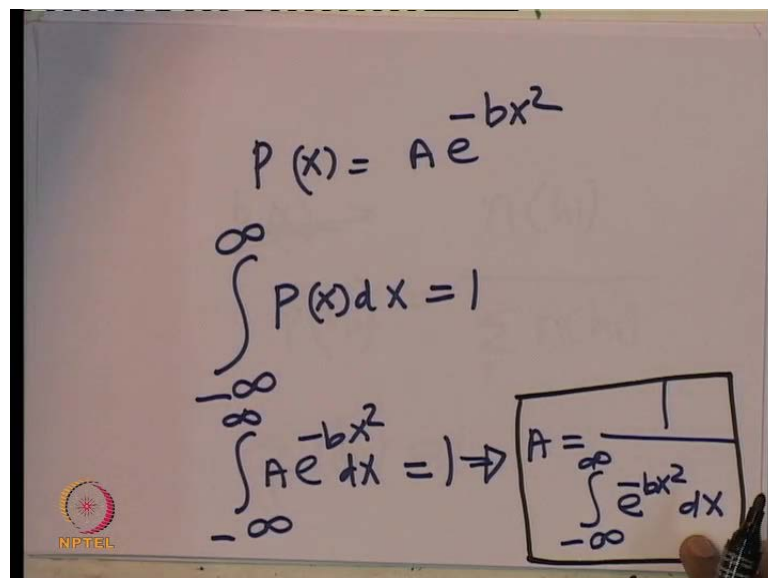 P(x) = A e^{-bx^2}
∫_{-∞}^{∞} P(x)dx = 1
∫_{-∞}^{∞} A e^{-bx^2} dx = 1 ⇒ A = 1 / ∫_{-∞}^{∞} e^{-bx^2} dx
NPTEL